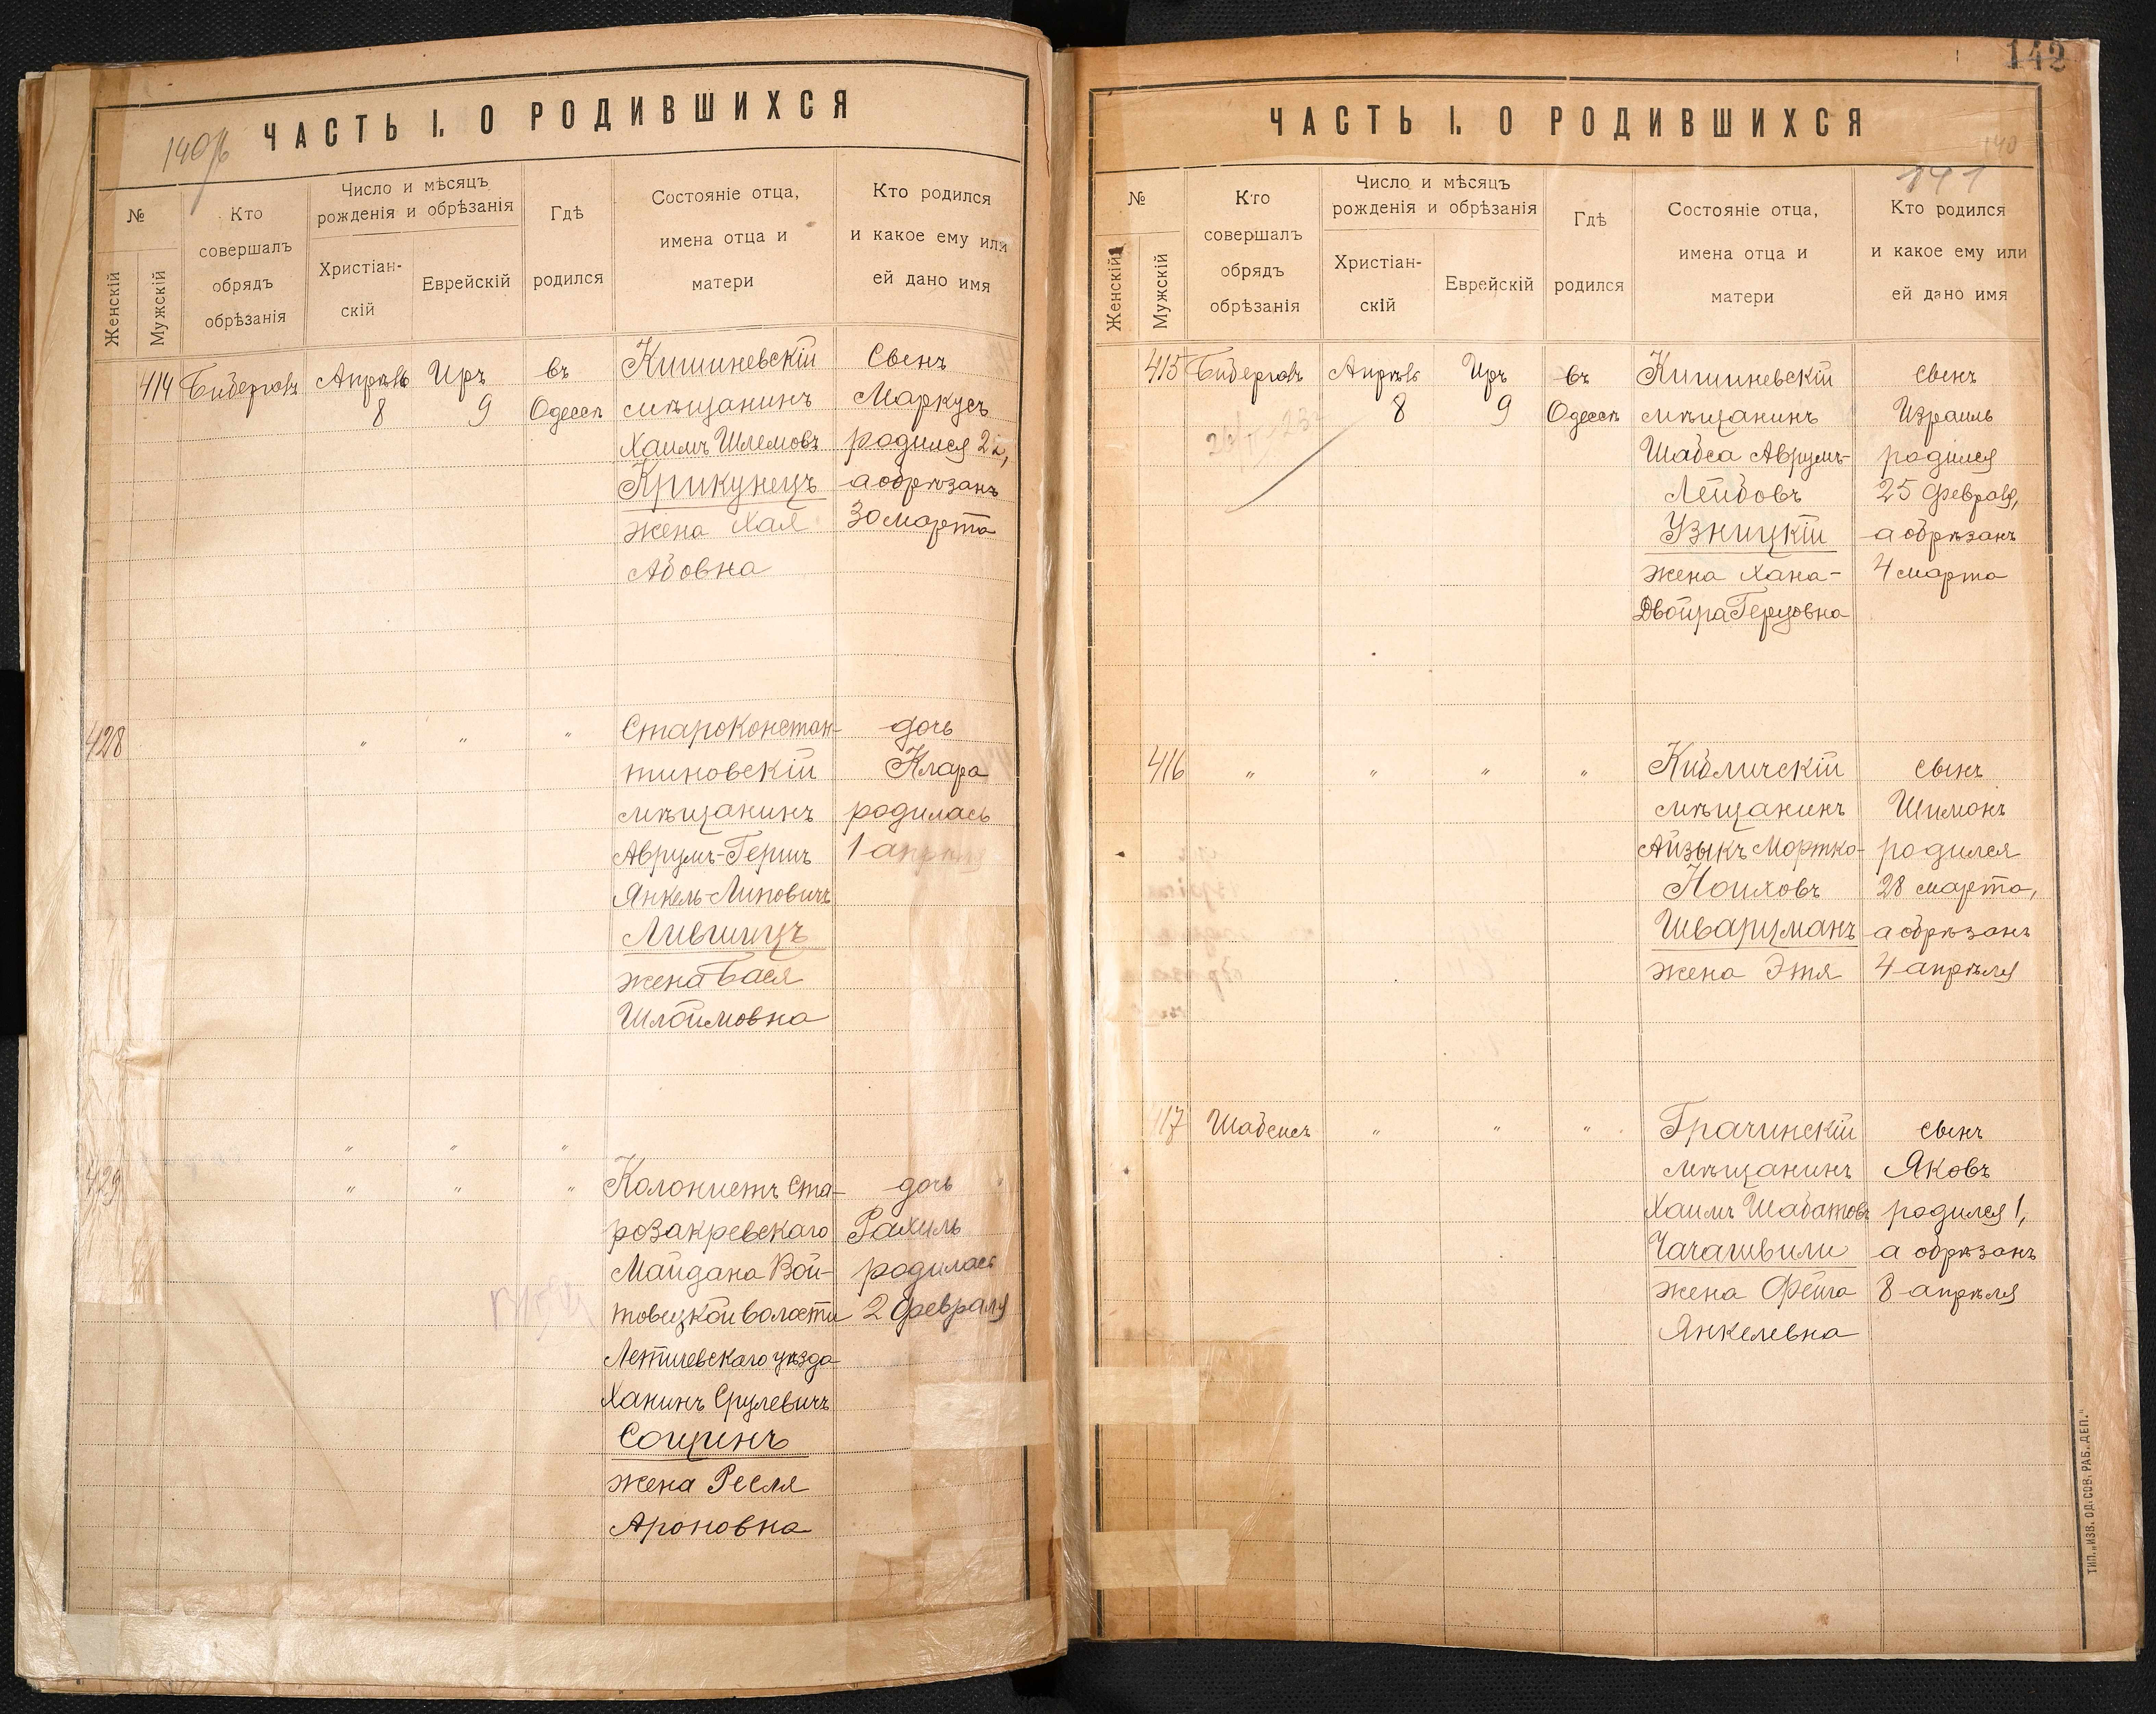 ЧАСТЬ I. О РОДИВШИХСЯ
№
Женскій
Мужскій
Кто
совершалъ
обрядъ
обрѣзанія
Число и мѣсяцъ
рожденія и обрѣзанія
Христіан-
скій
Еврейскій
Гдѣ
родился
Состояніе отца,
имена отца и
матери
Кто родился
и какое ему или
ей дано имя
414
Бибергалъ
Апрѣль
8
Иръ
9
въ
Одессѣ
Кишиневскій
мѣщанинъ
Хаимъ Шлемовъ
Крикунецъ
жена Хая
Абовна
сынъ
Маркусъ
родился
а обрѣзанъ
30 марта
428
" " "
Староконстан-
тиновскій
мѣщанинъ
Аврумъ-Гершъ
Янкель-Липовичъ
Лившицъ
жена Бася
Шлоймовна
дочь
Клара
родилась
1 апрѣля
" " "
429
" " "
Колонистъ Ста-
розакревскаго
Майдана Вой-
товецкой волости
Летичевскаго уѣзда
Ханинъ Срулевичъ
Социнъ
жена Ресля
Ароновна
дочь
Рахиль
родилась
2 февраля
142
ЧАСТЬ I. О РОДИВШИХСЯ
140
141
№
Женскій
Мужскій
Кто
совершалъ
обрядъ
обрѣзанія
Число и мѣсяцъ
рожденія и обрѣзанія
Христіан-
скій
Еврейскій
Гдѣ
родился
Состояніе отца,
имена отца и
матери
Кто родился
и какое ему или
ей дано имя
415
Бибергалъ
Апрѣль
8
Иръ
9
въ
Одессѣ
Кишиневскій
мѣщанинъ
Шабса Аврумъ-
Лейбовъ
Узницкій
жена Хана-
Двойра Герцовна
сынъ
Израиль
родился
25 февраля,
а обрѣзанъ
4 марта
416
" " " "
Кибличскій
мѣщанинъ
Айзыкъ Мортко-
Ноиховъ
Шварцманъ
жена Этя
сынъ
Шимонъ
родился
28 марта,
а обрѣзанъ
4 апрѣля
417
Шабсисъ
" " "
Грачинскій
мѣщанинъ
Хаимъ Шабатовъ
Чачашвили
жена Фейга
Янкелевна
сынъ
Яковъ
родился 1,
а обрѣзанъ
8 апрѣля
ТИП. „ИЗВ. ОД. СОВ. РАБ. ДЕП."